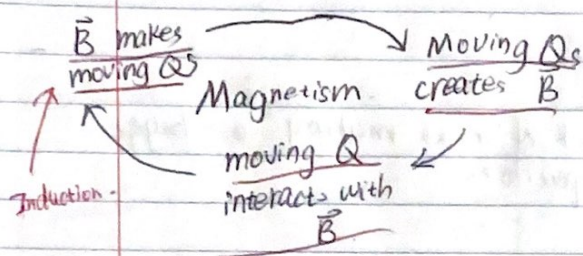 B⃗ makes
moving Qs
Moving Qs
creates B⃗
Magnetism
moving Q
interacts with
B⃗
Induction.